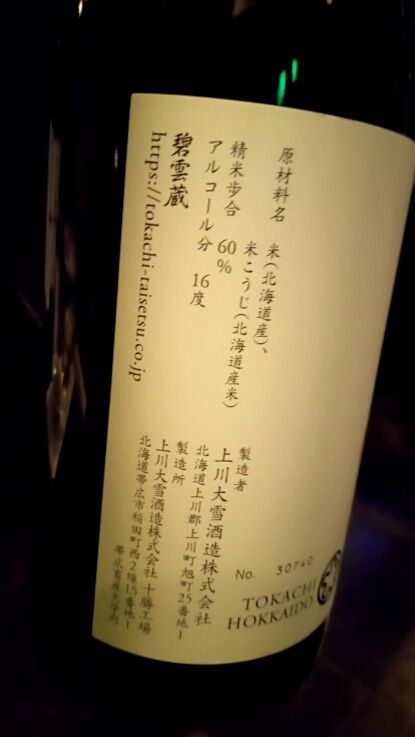 原材料名 米(北海道産)、
米こうじ(北海道産米)
精米歩合 60%
アルコール分 16度
碧雲蔵
https://tokachi-taisetsu.co.jp
製造者
上川大雪酒造株式会社
北海道上川郡上川町旭町25番地1
製造所
上川大雪酒造株式会社 十勝工場
北海道帯広市稲田町西2線15番地1
帯広畜産大学内
No. 30740
TOKACHI
HOKKAIDO